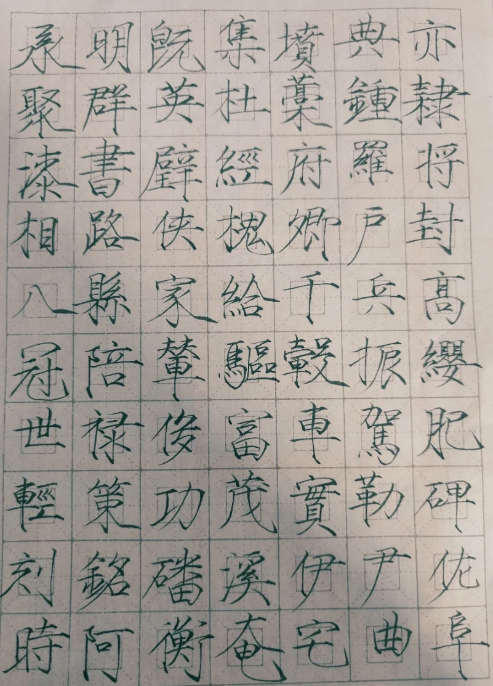 承明既集墳典亦
聚群英杜藁鍾隸
漆書壁經府羅将
相路俠槐卿戶封
八縣家給千兵高
冠陪輦驅轂振纓
世禄侈富車駕肥
輕策功茂實勒碑
刻銘磻溪伊尹佐
時阿衡奄宅曲阜